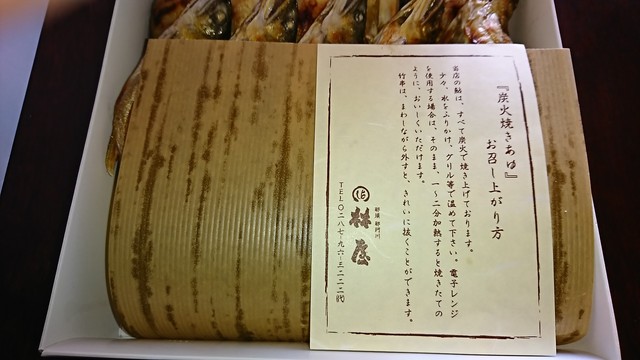 『炭火焼きあゆ』
お召し上がり方
当店の鮎は、すべて炭火で焼き上げております。
少々、水をふりかけ、グリル等で温めて下さい。電子レンジ
を使用する場合は、そのまま、一〜二分加熱すると焼きたての
ように、おいしくいただけます。
竹串は、まわしながら外すと、きれいに抜くことができます。
林屋
TEL〇二八七-九六-三二二二㈹